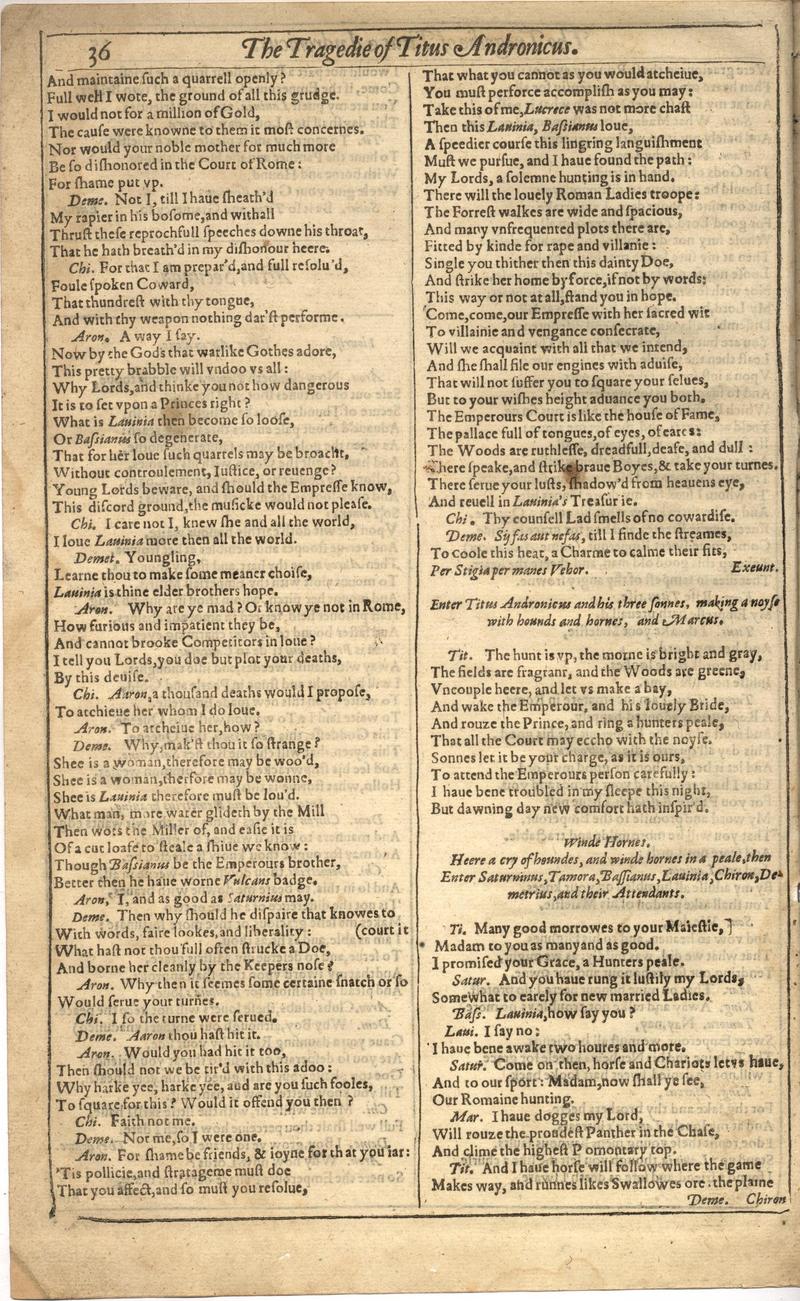 36
The Tragedie of Titus Andronicus.
And maintaine ſuch a quarrell openly?
Full well I wote, the ground of all this grudge.
I would not for a million of Gold,
The cauſe were knowne to them it moſt concernes.
Nor would your noble mother for much more
Be ſo diſhonored in the Court of Rome:
For ſhame put vp.
Deme. Not I, till I haue ſheath'd
My rapier in his boſome, and withall
Thruſt theſe reprochfull ſpeeches downe his throat,
That he hath breath'd in my diſhonour heere.
Chi. For that I am prepar'd, and full reſolu'd,
Foule ſpoken Coward,
That thundreſt with thy tongue,
And with thy weapon nothing dar'ſt performe.
Aron. A way I ſay.
Now by the Gods that warlike Gothes adore,
This pretty brabble will vndoo vs all:
Why Lords, and thinke you not how dangerous
It is to ſet vpon a Princes right?
What is Lauinia then become ſo looſe,
Or Baſsianus ſo degenerate,
That for her loue ſuch quarrels may be broacht,
Without controulement, Iuſtice, or reuenge?
Young Lords beware, and ſhould the Empreſſe know,
This diſcord ground, the muſicke would not pleaſe.
Chi. I care not I, knew ſhe and all the world,
I loue Lauinia more then all the world.
Demet. Youngling,
Learne thou to make ſome meaner choiſe,
Lauinia is thine elder brothers hope.
Aron. Why are ye mad? Or know ye not in Rome,
How furious and impatient they be,
And cannot brooke Competitors in loue?
I tell you Lords, you doe but plot your deaths,
By this deuiſe.
Chi. Aaron, a thouſand deaths would I propoſe,
To atchieue her whom I do loue.
Aron. To atcheiue her, how?
Deme. Why, mak'ſt thou it ſo ſtrange?
Shee is a woman, therefore may be woo'd,
Shee is a woman, therfore may be wonne,
Shee is Lauinia therefore muſt be lou'd.
What man, more water glideth by the Mill
Then wots the Miller of, and eaſie it is
Of a cut loafe to ſteale a ſhiue we know:
Though Baſsianus be the Emperours brother,
Better then he haue worne Vulcans badge.
Aron. I, and as good as Saturnius may.
Deme. Then why ſhould he diſpaire that knowes to
With words, faire lookes, and liberality: (court it
What haſt not thou full often ſtrucke a Doe,
And borne her cleanly by the Keepers noſe?
Aron. Why then it ſeemes ſome certaine ſnatch or ſo
Would ſerue your turnes.
Chi. I ſo the turne were ſerued.
Deme. Aaron thou haſt hit it.
Aron. Would you had hit it too,
Then ſhould not we be tir'd with this adoo:
Why harke yee, harke yee, and are you ſuch fooles,
To ſquare for this? Would it offend you then?
Chi. Faith not me.
Deme. Nor me, ſo I were one.
Aron. For ſhame be friends, & ioyne for that you iar:
'Tis pollicie, and ſtratageme muſt doe
That you affect, and ſo muſt you reſolue,
That what you cannot as you would atcheiue,
You muſt perforce accompliſh as you may:
Take this of me, Lucrece was not more chaſt
Then this Lauinia, Baſsianus loue,
A ſpeedier courſe this lingring languiſhment
Muſt we purſue, and I haue found the path:
My Lords, a ſolemne hunting is in hand.
There will the louely Roman Ladies troope:
The Forreſt walkes are wide and ſpacious,
And many vnfrequented plots there are,
Fitted by kinde for rape and villanie:
Single you thither then this dainty Doe,
And ſtrike her home by force, if not by words:
This way or not at all, ſtand you in hope.
Come, come, our Empreſſe with her ſacred wit
To villainie and vengance conſecrate,
Will we acquaint with all that we intend,
And ſhe ſhall file our engines with aduiſe,
That will not ſuffer you to ſquare your ſelues,
But to your wiſhes height aduance you both.
The Emperours Court is like the houſe of Fame,
The pallace full of tongues, of eyes, of eares:
The Woods are ruthleſſe, dreadfull, deafe, and dull:
There ſpeake, and ſtrike braue Boyes, & take your turnes.
There ſerue your luſts, ſhadow'd from heauens eye,
And reuell in Lauinia's Treaſurie.
Chi. Thy counſell Lad ſmells of no cowardiſe.
Deme. Sy fas aut nefas, till I finde the ſtreames,
To coole this heat, a Charme to calme their fits,
Per Stigia per manes Vehor. Exeunt.
Enter Titus Andronicus and his three ſonnes, making a noyſe
with hounds and hornes, and Marcus.
Tit. The hunt is vp, the morne is bright and gray,
The fields are fragrant, and the Woods are greene,
Vncouple heere, and let vs make a bay,
And wake the Emperour, and his louely Bride,
And rouze the Prince, and ring a hunters peale,
That all the Court may eccho with the noyſe.
Sonnes let it be your charge, as it is ours,
To attend the Emperours perſon carefully:
I haue bene troubled in my ſleepe this night,
But dawning day new comfort hath inſpir'd.
Winde Hornes.
Heere a cry of houndes, and winde hornes in a peale, then
Enter Saturninus, Tamora, Baſſianus, Lauinia, Chiron, De-
metrius, and their Attendants.
Ti. Many good morrowes to your Maieſtie,
Madam to you as many and as good.
I promiſed your Grace, a Hunters peale.
Satur. And you haue rung it luſtily my Lords,
Somewhat to earely for new married Ladies.
Baſs. Lauinia, how ſay you?
Laui. I ſay no:
I haue bene awake two houres and more.
Satur. Come on then, horſe and Chariots let vs haue,
And to our ſport: Madam, now ſhall ye ſee,
Our Romaine hunting.
Mar. I haue dogges my Lord,
Will rouze the proudeſt Panther in the Chaſe,
And clime the higheſt P omontary top.
Tit. And I haue horſe will follow where the game
Makes way, and runnes likes Swallowes ore the plaine
Deme. Chiron